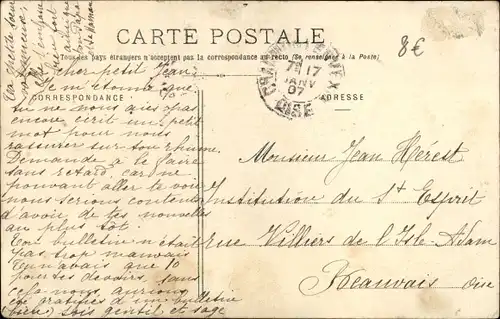 CARTE POSTALE
Tous les pays étrangers n'acceptent pas la correspondance au recto (Se renseigner à la Poste)
8€
CORRESPONDANCE
ADRESSE
17
JANV
07
OISE
cher petit Jean
Je m'étonne que
tu ne nous aies pas
encore écrit un petit
mot pour nous
rassurer sur ton rhume.
Demande à le faire
sans retard, car ne
pouvant aller te voir
nous serions contents
d'avoir de tes nouvelles
au plus tôt.
Ton bulletin n'était
pas trop mauvais
Tu n'avais que 10
pour tes devoirs, sans
cela nous aurions
été gratifiés d'un bulletin
bien) Sois gentil et sage
Monsieur Jean Hérest
Institution du St Esprit
rue Villiers de l'Isle-Adam
Beauvais
Oise
Ta petite sœur
t'embrasse
bien fort